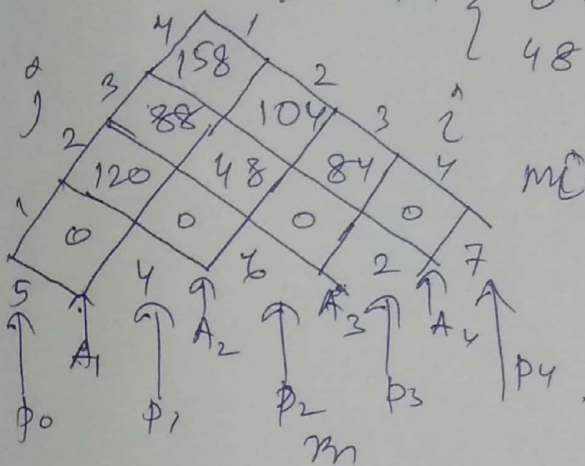 { 0
48
4 1
158
3 2
j 88 104 3 i
2 120 48 84 4 m[
1 0 0 0 0
5 4 6 2 7
A1 A2 A3 A4
p0 p1 p2 p3 p4
m